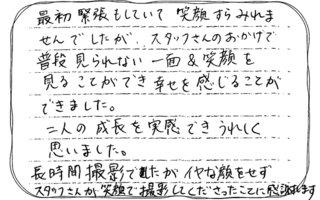 最初緊張もしていて 笑顔すらみれま
せんでしたが、スタッフさんのおかげで
普段見られない一面&笑顔を
見ることができ幸せを感じることが
できました。
二人の成長を実感できうれしく
思いました。
長時間撮影でしたがイヤな顔をせず
スタッフさんが笑顔で撮影してくださったことに感謝します